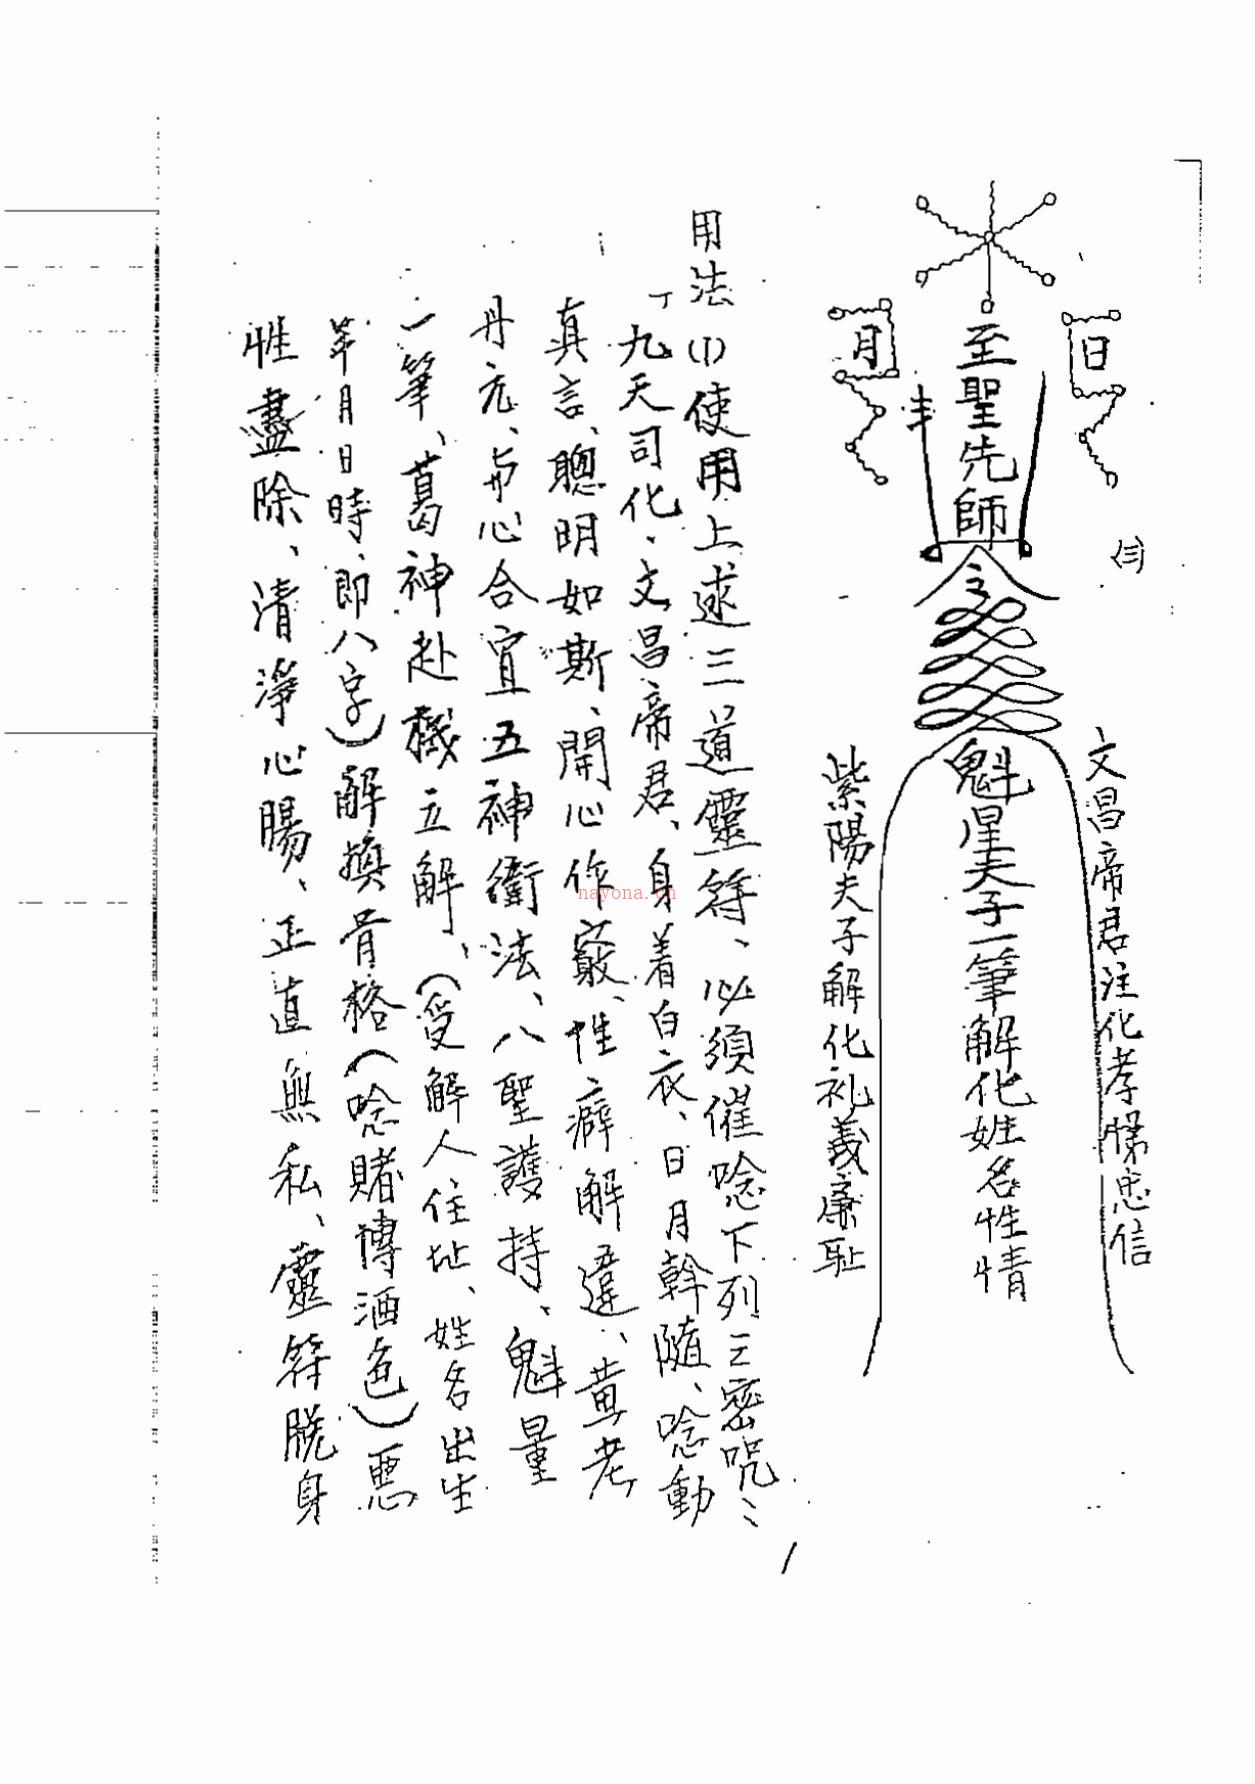 ㈢
日
至聖先師
月
令
文昌帝君注化孝悌忠信
魁星夫子一筆解化姓名性情
紫陽夫子解化礼義廉耻
用法(1)使用上述三道靈符、必須催唸下列三密咒:
「九天司化、文昌帝君、身着白衣、日月幹隨、唸動
真言、聰明如斯、開心作竅、性癖解違、黃老
丹元、与心合宜五神衛法、八聖護持、魁星
一筆、葛神赴機立解、(受解人住址、姓名出生
年月日時、即八字)解換骨格(唸賭博酒色)惡
性盡除、清淨心腸、正直無私、靈符脫身
nayona.cn